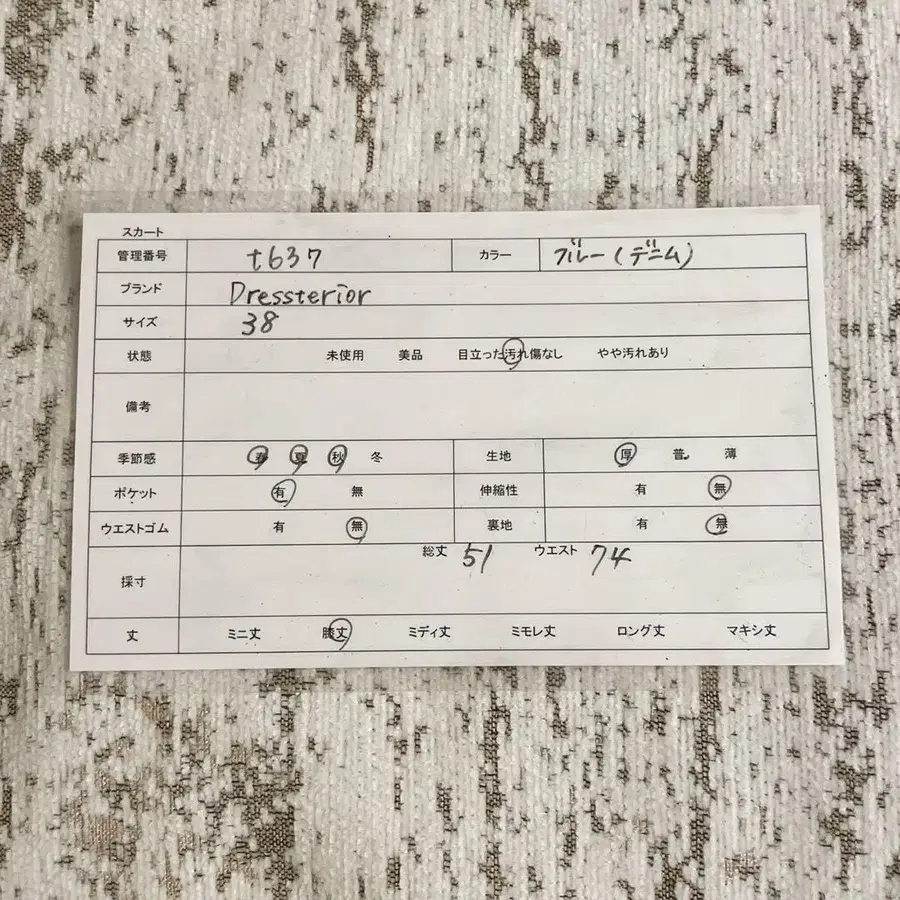 スカート
管理番号 t637 カラー ブルー(デニム)
ブランド Dressterior
サイズ 38
状態 未使用 美品 目立った汚れ傷なし やや汚れあり
備考
季節感 春 夏 秋 冬 生地 厚 普 薄
ポケット 有 無 伸縮性 有 無
ウエストゴム 有 無 裏地 有 無
採寸 総丈 51 ウエスト 74
丈 ミニ丈 膝丈 ミディ丈 ミモレ丈 ロング丈 マキシ丈